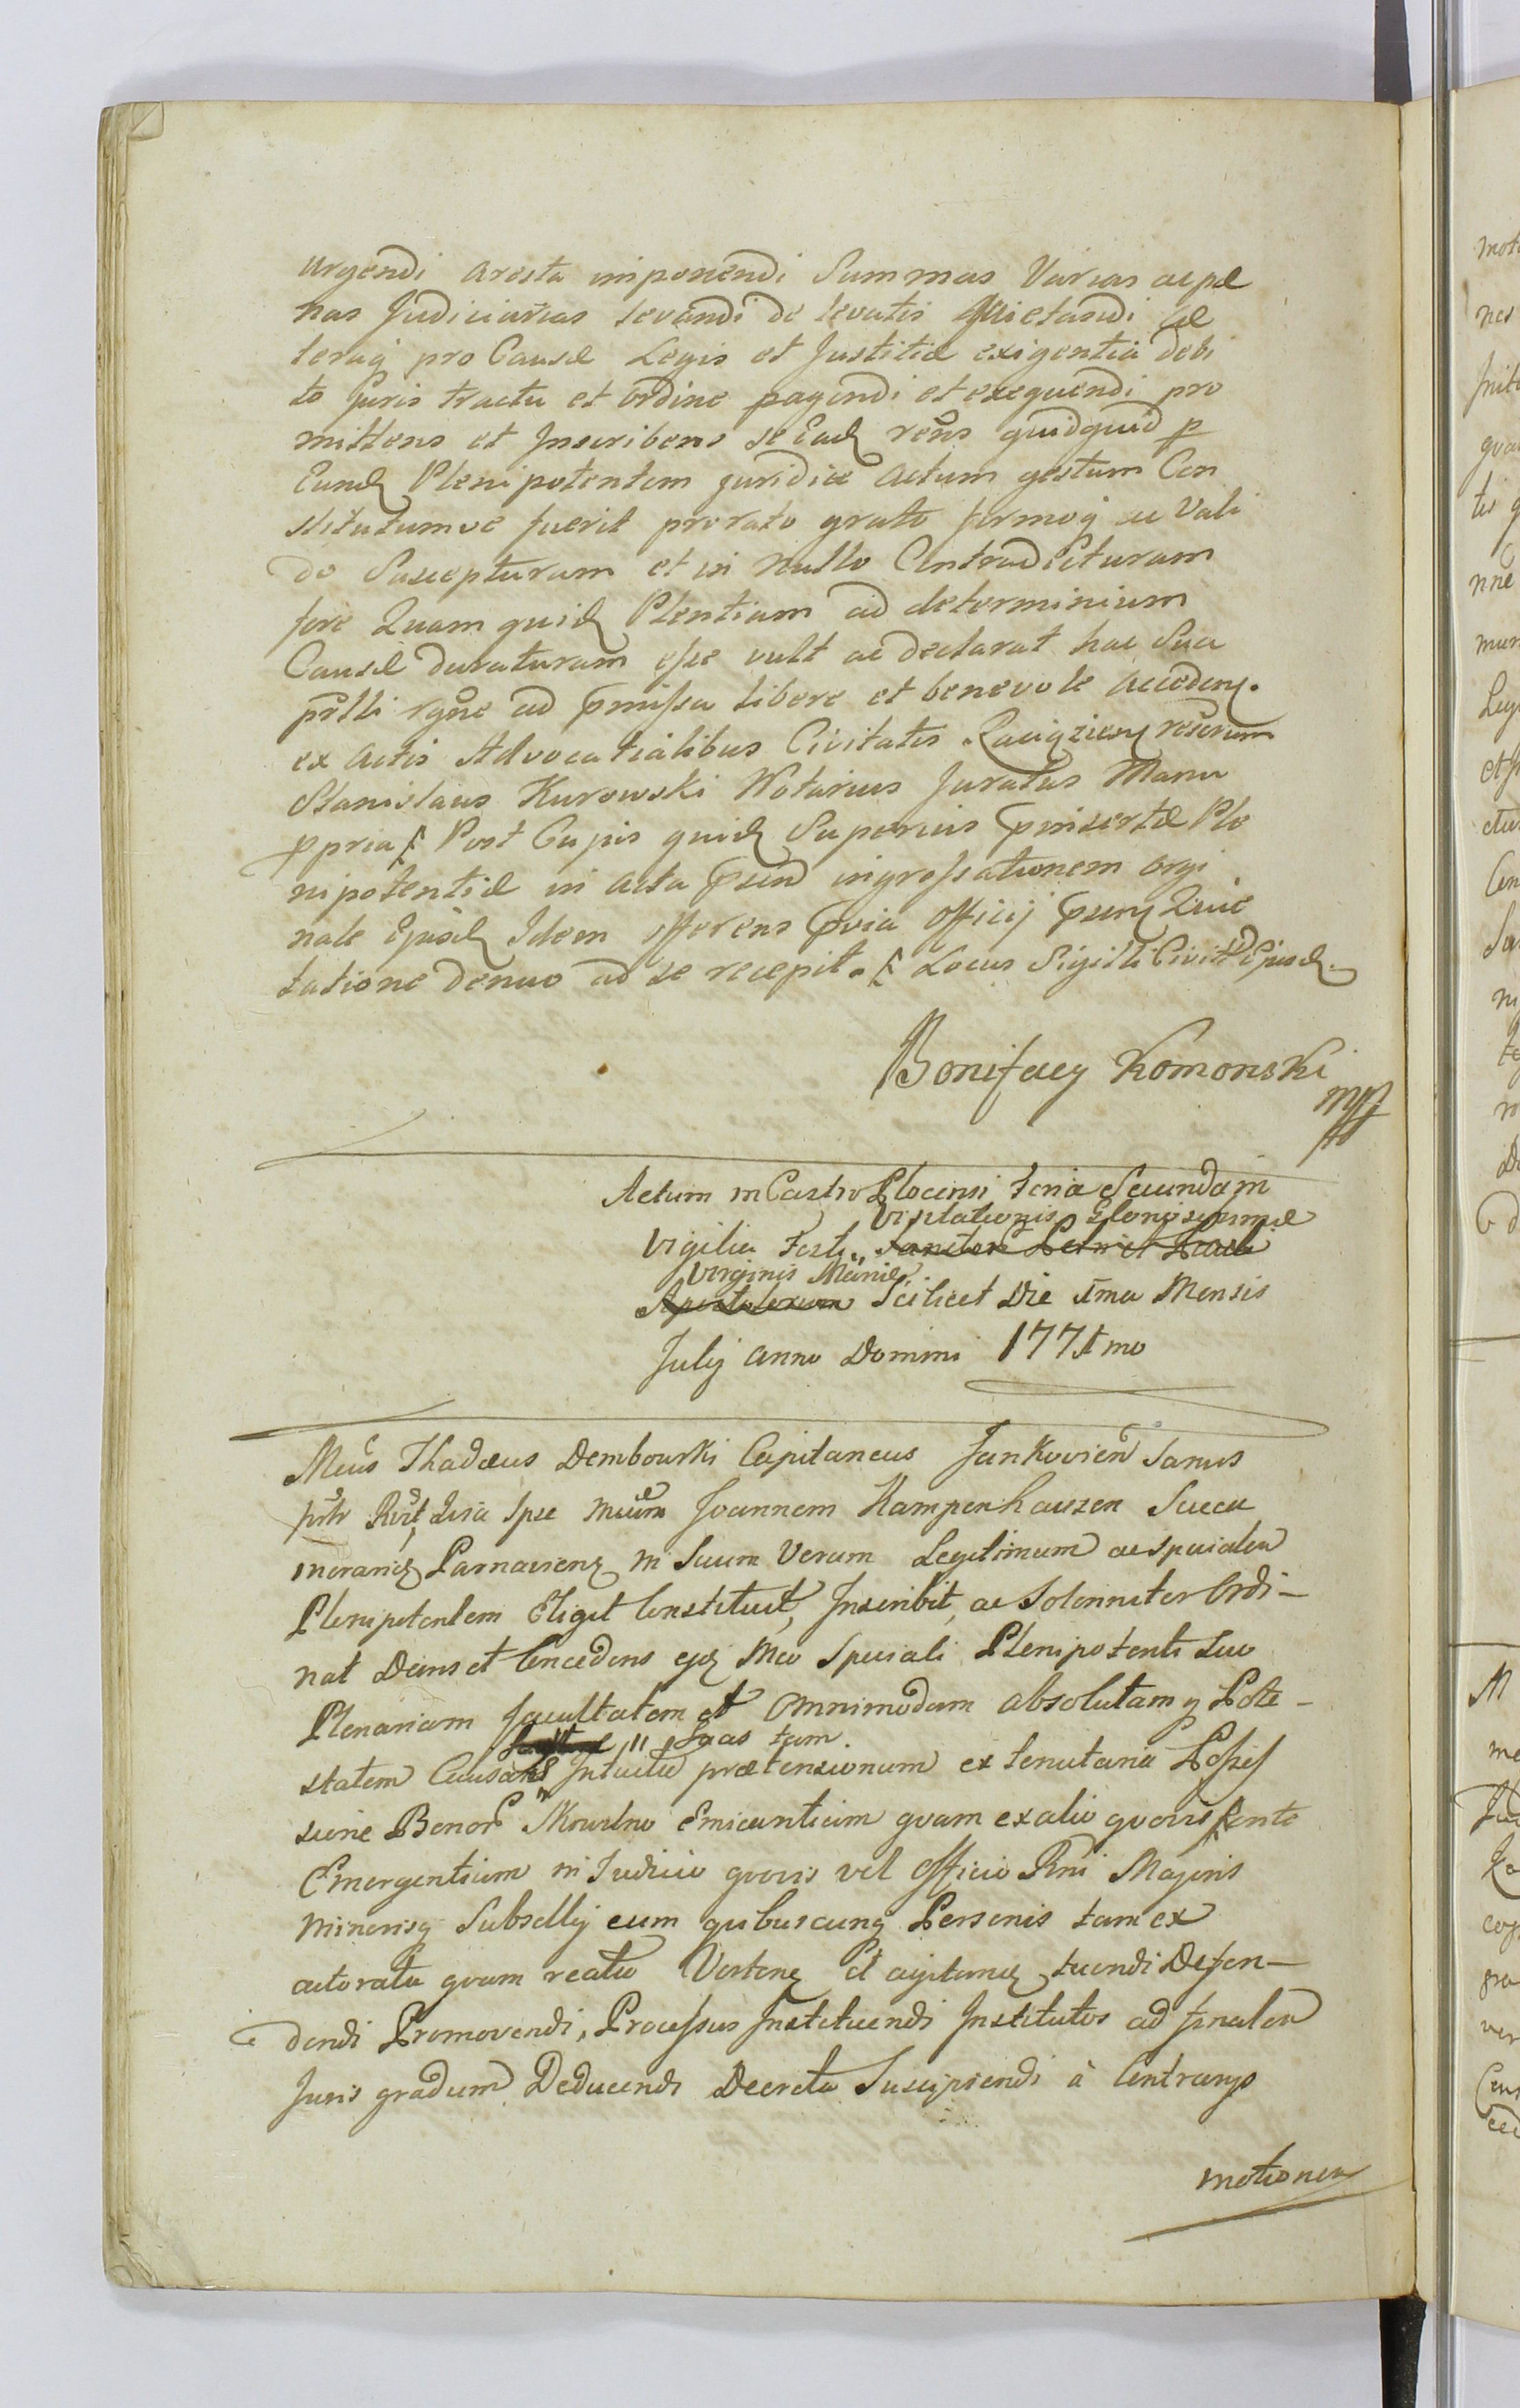 urgendi aresta imponendi Summas Varias ac pæ
nas Judiciarias levandi de levatis quietandi cæ
teraq pro Causæ Legis et Justitiæ exigentia debi
to Juris tractu et ordine pagendi et exequendi pro
mittens et Inscribens se Ead rens quidquid p
Eund Plenipotentem juridice actum gestum Con
stitutumve fuerit pro rato grato firmoq ac Vali
do Suscepturam et in nullo Contradicturam
fore Quam quid Plentiam ad determinium
Causæ duraturam esse vult ac declarat hac Sua
ad pmissa libere et benevole accedens.
ex Actis Advocatialibus Civitatis Raciązien
Stanislaus Kurowski Notarius Juratus Manu
ppria Post Cujus quid Superius pinsertæ Ple
nipotentiæ in acta psen ingrossationem origi
nale Ejusd Idem offerens pvia Officij psen Quie
tatione denuo ad se recepit. Locus Sigilli Civit Ejusd.
Bonifacy Komorski
mp
Actum in Castro Plocensi feria Secunda in
Visitationis Gloriosissimæ
vigilia Festi Sanctor Petri et Pauli
Virginis Mariæ
Apostolorum Scilicet Die 1ma Mensis
Julij anno Domini 1771mo
Mcus Thadæus Dembowski Capitaneus Jankovien Sanus
Ipse Mcum Joannem Kampenhauzen Succa
merarium Parnavien in Suum Verum Legitimum ac specialem
Plenipotentem Eligit Constituit, Inscribit, ac Solenniter Ordi-
nat Dans et Concedens ejd Mco Speciali Plenipotenti suo
Plenariam facultatem et Omnimodam absolutamq Pote-
Suas tam
statem Causas Intuitu prætensionum ex tenutaria Posses
sione Bonor Emicantium quam ex alio quovis fonte
Emergentium in Judicio quovis vel Officio Rni Majoris
Minorisq Subsellij cum quibuscunq Personis tam ex
actoratu quam reatu Verten et agitan tuendi Defen-
dendi Promovendi, Processus Instituendi Institutos ad finalem
Juris gradum Deducendi Decreta Suscipiendi à Contrarijs
motionem